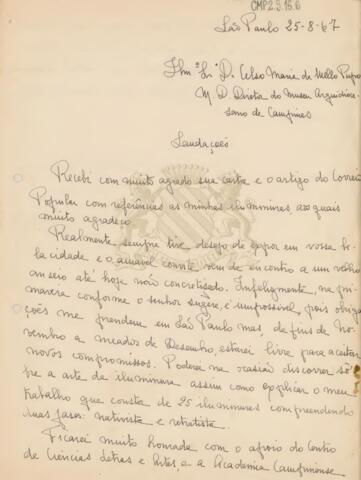 CMP2.9.16.6
São Paulo 25-8-67
Ilmº Sr. D. Celso Maria de Mello Pupo
M. D. Diretor do Museu Arquidioce-
sano de Campinas
Saudações
Recebi com muito agrado sua carta e o artigo do Correio
Popular com referências as minhas iluminures, aos quais
muito agradeço.
Realmente sempre tive desejo de expor em vossa be-
la cidade e o amavel convite vem de encontro a um velho
anseio até hoje não concretisado. Infelizmente, na pri-
mavera conforme o senhor sugere, é impossivel, pois obriga-
ções me prendem em São Paulo mas, de fins de No-
vembro a meados de Desembro, estarei livre para aceitar
novos compromissos. Poderei na ocasião discorrer sô-
bre a arte da iluminura assim como explicar o meu
trabalho que consta de 25 iluminures compreendendo
duas fases: nativista e retratista.
Ficarei muito honrada com o apoio do Centro
de Ciências Letras e Artes, e a Academia Campinense